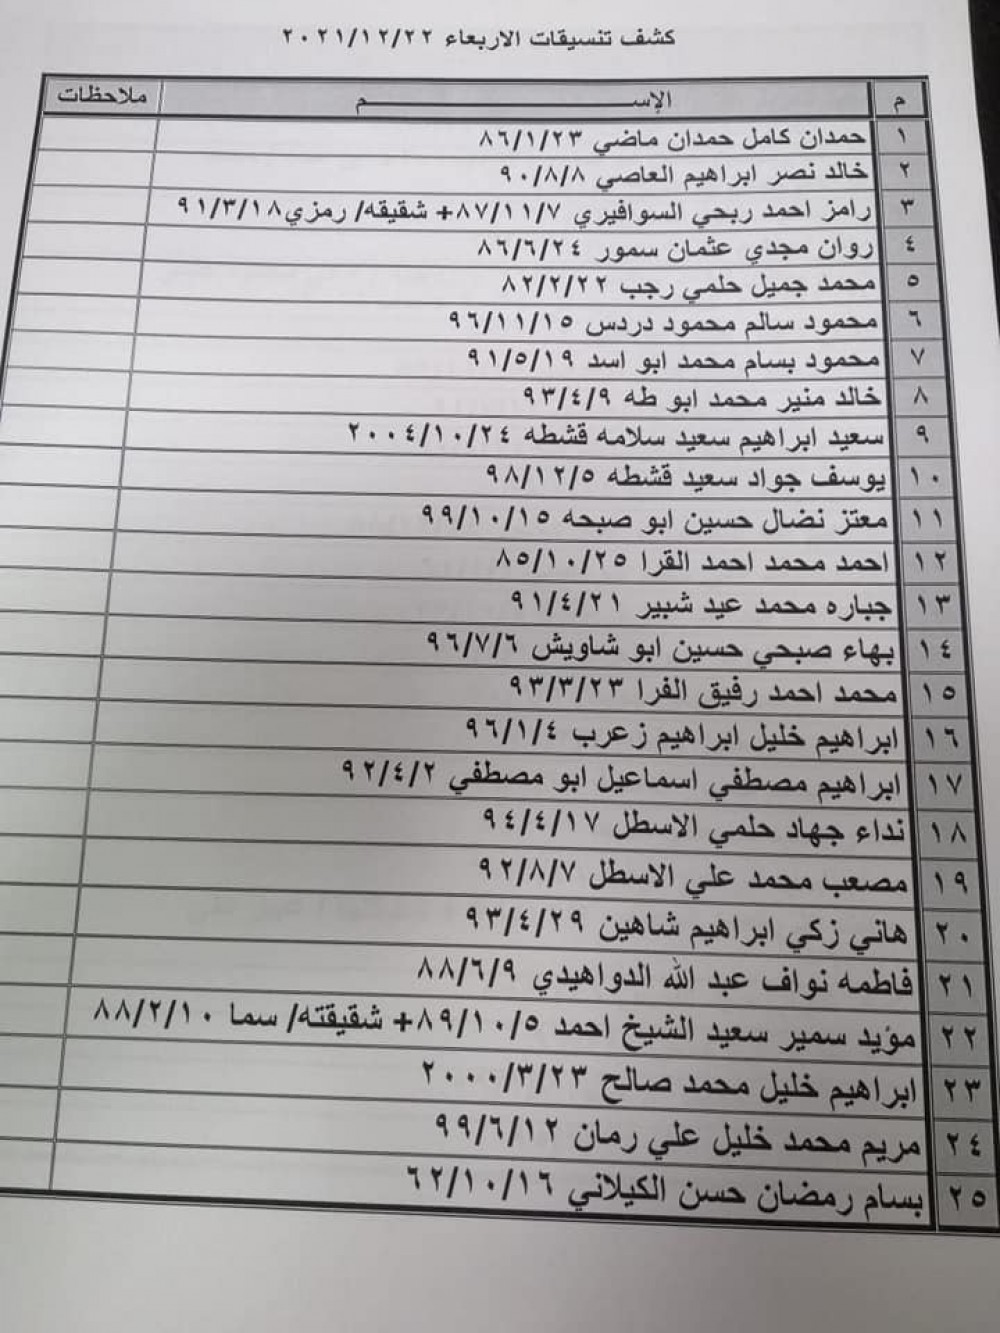 كشف تنسيقات الاربعاء ٢٠٢١/١٢/٢٢
م الإســـــــم ملاحظات
١ حمدان كامل حمدان ماضي ٨٦/١/٢٣
٢ خالد نصر ابراهيم العاصي ٩٠/٨/٨
٣ رامز احمد ربحي السوافيري ٨٧/١١/٧+ شقيقه/ رمزي٩١/٣/١٨
٤ روان مجدي عثمان سمور ٨٦/٦/٢٤
٥ محمد جميل حلمي رجب ٨٢/٢/٢٢
٦ محمود سالم محمود دردس ٩٦/١١/١٥
٧ محمود بسام محمد ابو اسد ٩١/٥/١٩
٨ خالد منير محمد ابو طه ٩٣/٤/٩
٩ سعيد ابراهيم سعيد سلامه قشطه ٢٠٠٤/١٠/٢٤
١٠ يوسف جواد سعيد قشطه ٩٨/١٢/٥
١١ معتز نضال حسين ابو صبحه ٩٩/١٠/١٥
١٢ احمد محمد احمد القرا ٨٥/١٠/٢٥
١٣ جباره محمد عيد شبير ٩١/٤/٢١
١٤ بهاء صبحي حسين ابو شاويش ٩٦/٧/٦
١٥ محمد احمد رفيق الفرا ٩٣/٣/٢٣
١٦ ابراهيم خليل ابراهيم زعرب ٩٦/١/٤
١٧ ابراهيم مصطفي اسماعيل ابو مصطفي ٩٢/٤/٢
١٨ نداء جهاد حلمي الاسطل ٩٤/٤/١٧
١٩ مصعب محمد علي الاسطل ٩٢/٨/٧
٢٠ هاني زكي ابراهيم شاهين ٩٣/٤/٢٩
٢١ فاطمه نواف عبد الله الدواهيدي ٨٨/٦/٩
٢٢ مؤيد سمير سعيد الشيخ احمد ٨٩/١٠/٥+ شقيقته/ سما ٨٨/٢/١٠
٢٣ ابراهيم خليل محمد صالح ٢٠٠٠/٣/٢٣
٢٤ مريم محمد خليل علي رمان ٩٩/٦/١٢
٢٥ بسام رمضان حسن الكيلاني ٦٢/١٠/١٦